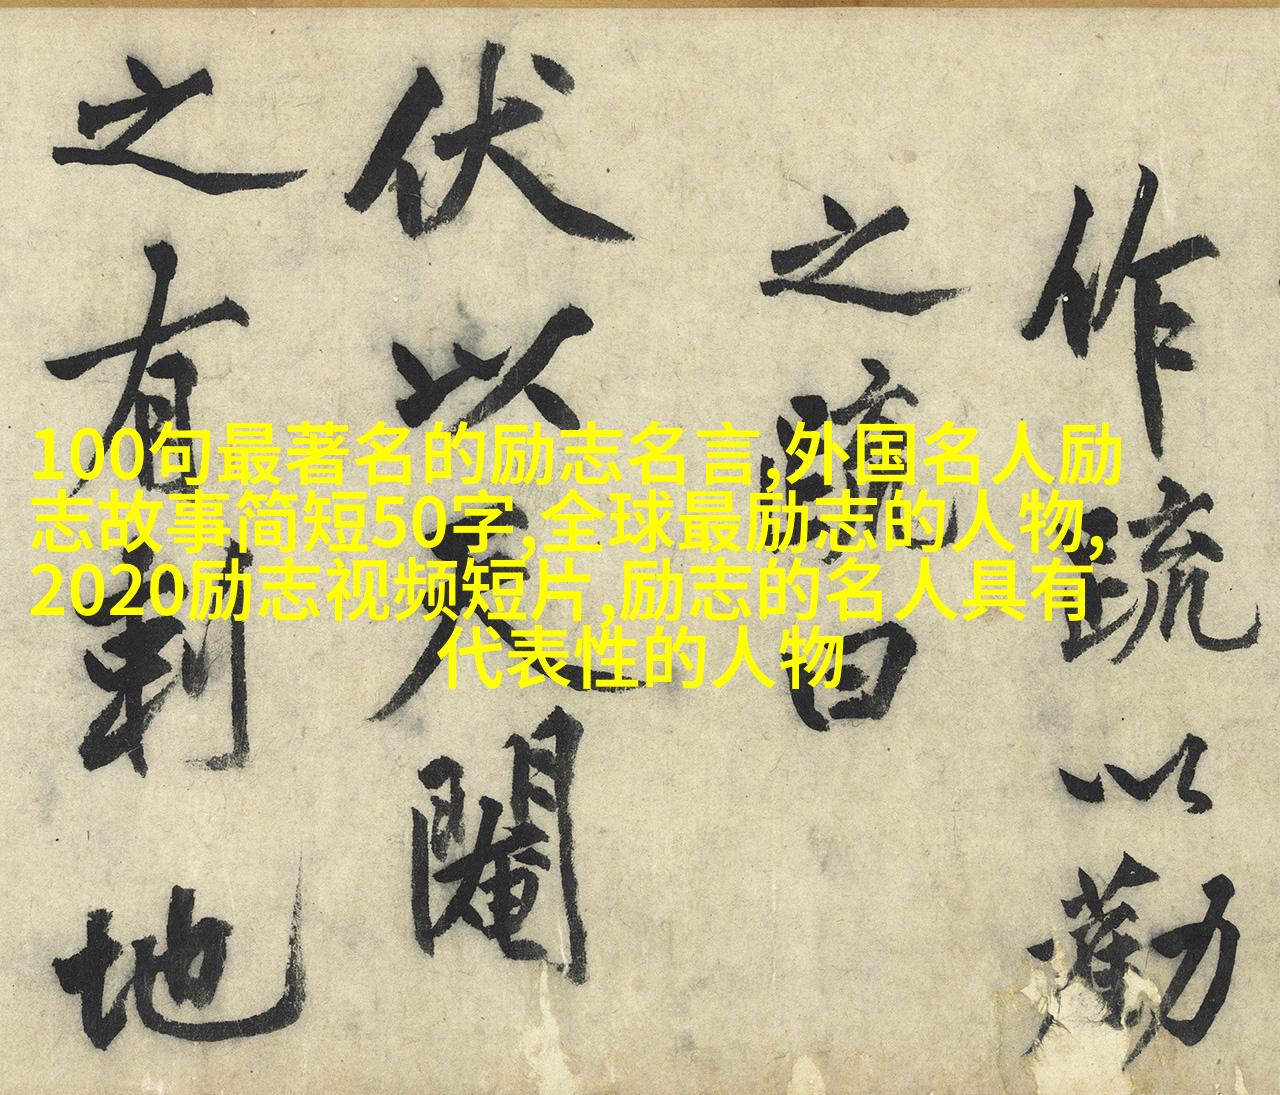 100句最著名的励志名言,外国名人励
志故事简短50字,全球最励志的人物,
2020励志视频短片,励志的名人具有
代表性的人物
作疏以勸
之疏曰
伏以閹
之有剎地